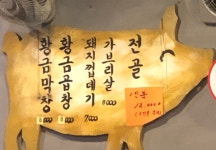 전골
가브리살
8000
돼지껍데기
7000
황금곱창
8000
황금막창
8000
12,000